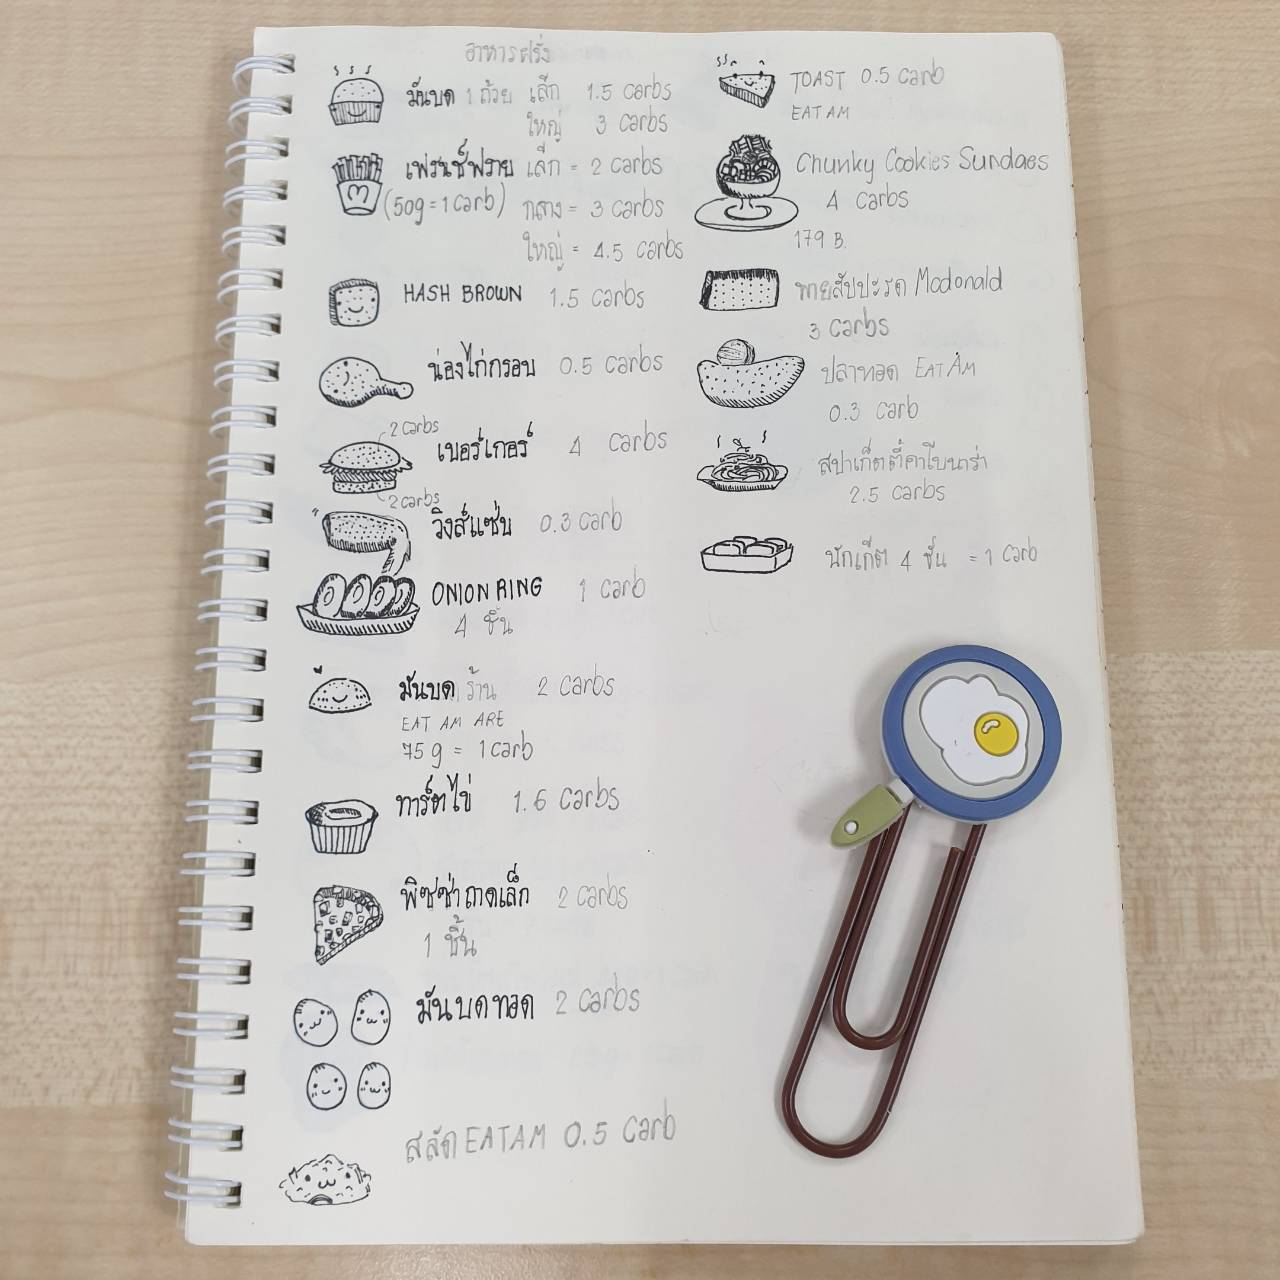 อาหารฝรั่ง
มันบด 1 ถ้วย เล็ก 1.5 carbs
ใหญ่ 3 carbs
เฟรนช์ฟราย เล็ก = 2 carbs
(50g = 1 carb) กลาง = 3 carbs
ใหญ่ = 4.5 carbs
HASH BROWN 1.5 carbs
น่องไก่กรอบ 0.5 carbs
2 carbs
เบอร์เกอร์ 4 carbs
2 carbs
วิงส์แซ่บ 0.3 carb
ONION RING 1 carb
4 ชิ้น
มันบด ร้าน 2 carbs
EAT AM ARE
75 g = 1 carb
ทาร์ตไข่ 1.6 carbs
พิซซ่าถาดเล็ก 2 carbs
1 ชิ้น
มันบดทอด 2 carbs
สลัด EAT AM 0.5 carb
TOAST 0.5 carb
EAT AM
Chunky Cookies Sundaes
4 carbs
179 B.
พายสัปปะรด Mcdonald
3 carbs
ปลาทอด EAT AM
0.3 carb
สปาเก็ตตี้คาโบนาร่า
2.5 carbs
นักเก็ต 4 ชิ้น = 1 carb